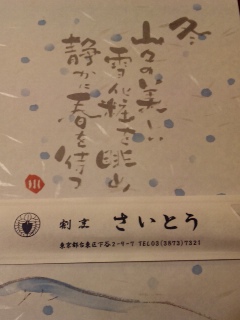 冬
山々の美しい
雪化粧を眺め
静かに春を待つ
割烹 さいとう
東京都台東区下谷2-9-7 TEL03(3873)7321